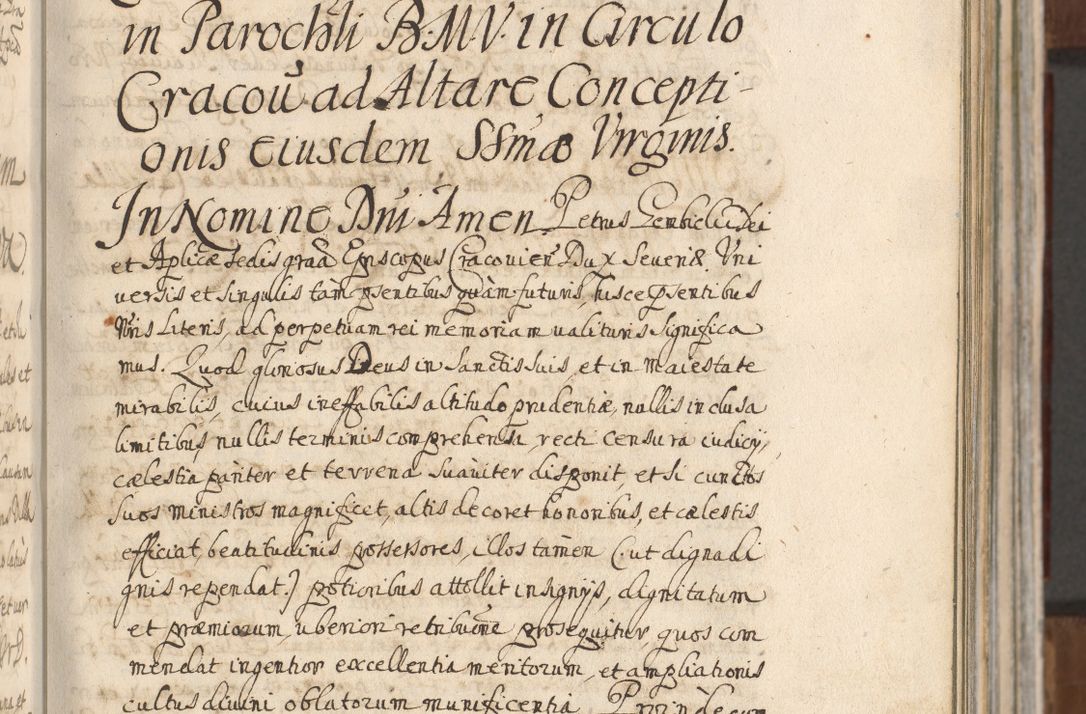 in Paroch̃li B.M.V. in Circulo
Cracou̾ ad Altare Concepti-
onis Eiusdem SSmæ Virginis.
In Nomine Dñi Amen Petrus Gembicki Dei
et Aplicæ Sedis graã Episcopus Cracovien̄ Dux Severiæ. Uni
versis et singulis tam p̄sentibus quàm futuris, hisce p̄sentibus
Nr̃is Literis, ad perpetuam rei memoriam valituris significa
mus. Quod gloriosus Deus in Sanctis suis, et in Maiestate
mirabilis, cuius ineffabilis altitudo prudentiæ, nullis inclusa
limitibus, nullis terminis comprehensa, recti censura iudicij,
cælestia pariter et terrena suaviter disponit, et si cunctos
suos ministros magnificet, altis decoret honoribus, et cælestis
efficiat, beatitudinis possessores, illos tamen (ut digna di
gnis rependat.) potioribus attollit insignijs, dignitatum
et præmiorum, uberiori retribuōne prosequitur, quos com
mendat ingentior excellentia meritorum, et ampliationis
cultus divini oblatorum munificentia Proinde cum